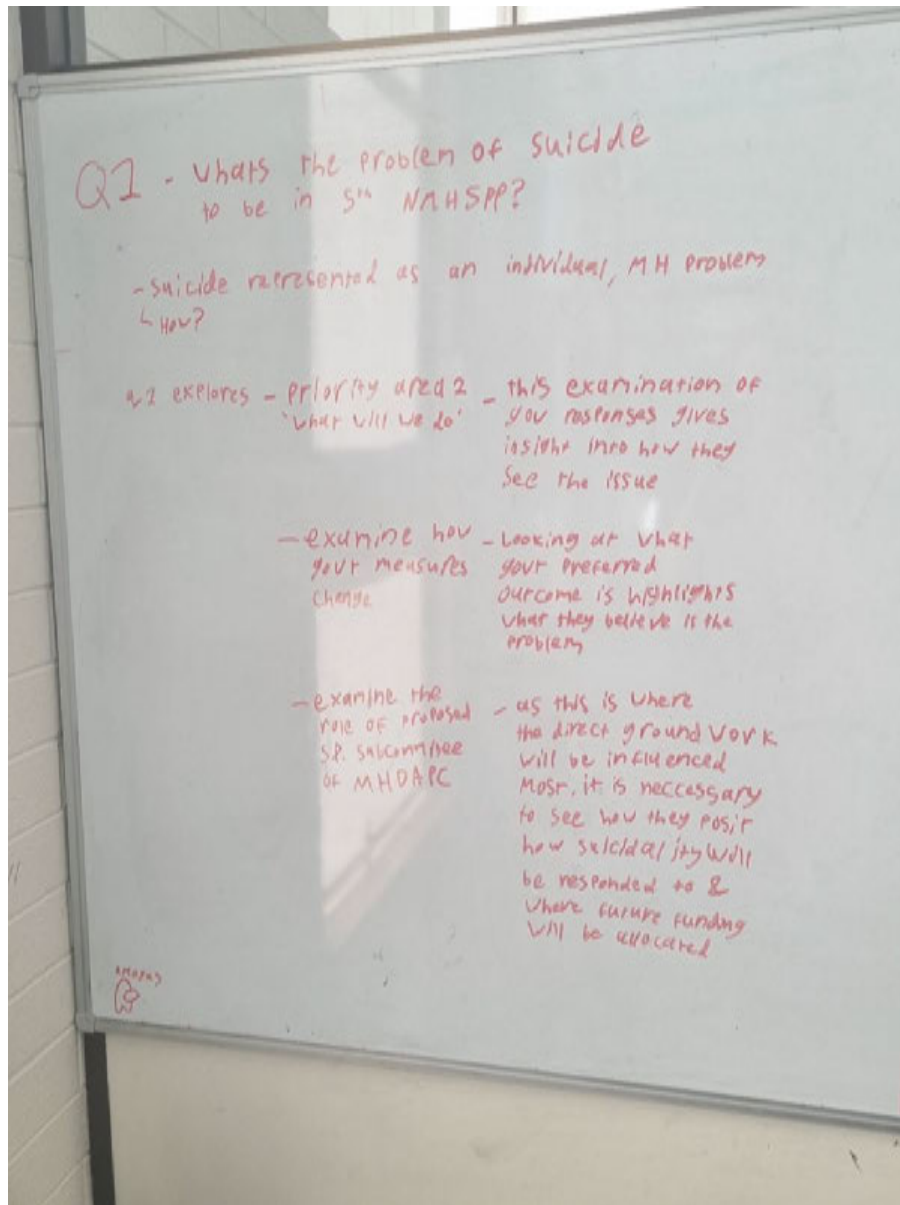 Q1 - whats the problem of suicide
to be in 5th NMHSPP?
- suicide represented as an individual, MH problem
↳ How?
Q1 explores - priority area 2
'what will we do'
- this examination of
gov responses gives
insight into how they
see the issue
- examine how
govt measures
change
- Looking at what
govt preferred
outcome is highlights
what they believe is the
problem
- examine the
role of proposed
S.P. subcommitee
of MHDAPC
- as this is where
the direct ground work
will be influenced
most, it is neccessary
to see how they posit
how suicidality will
be responded to &
where future funding
will be allocated